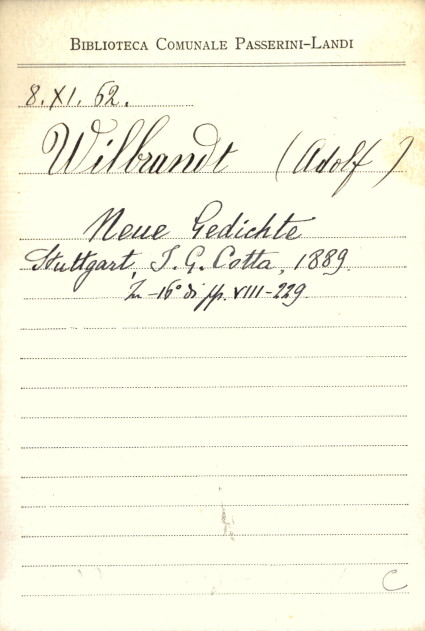 BIBLIOTECA COMUNALE PASSERINI-LANDI
8. XI. 62.
Wilbrandt (Adolf)
Neue Gedichte
Stuttgart, J. G. Cotta, 1889.
In -16° di pp. VIII-229
C